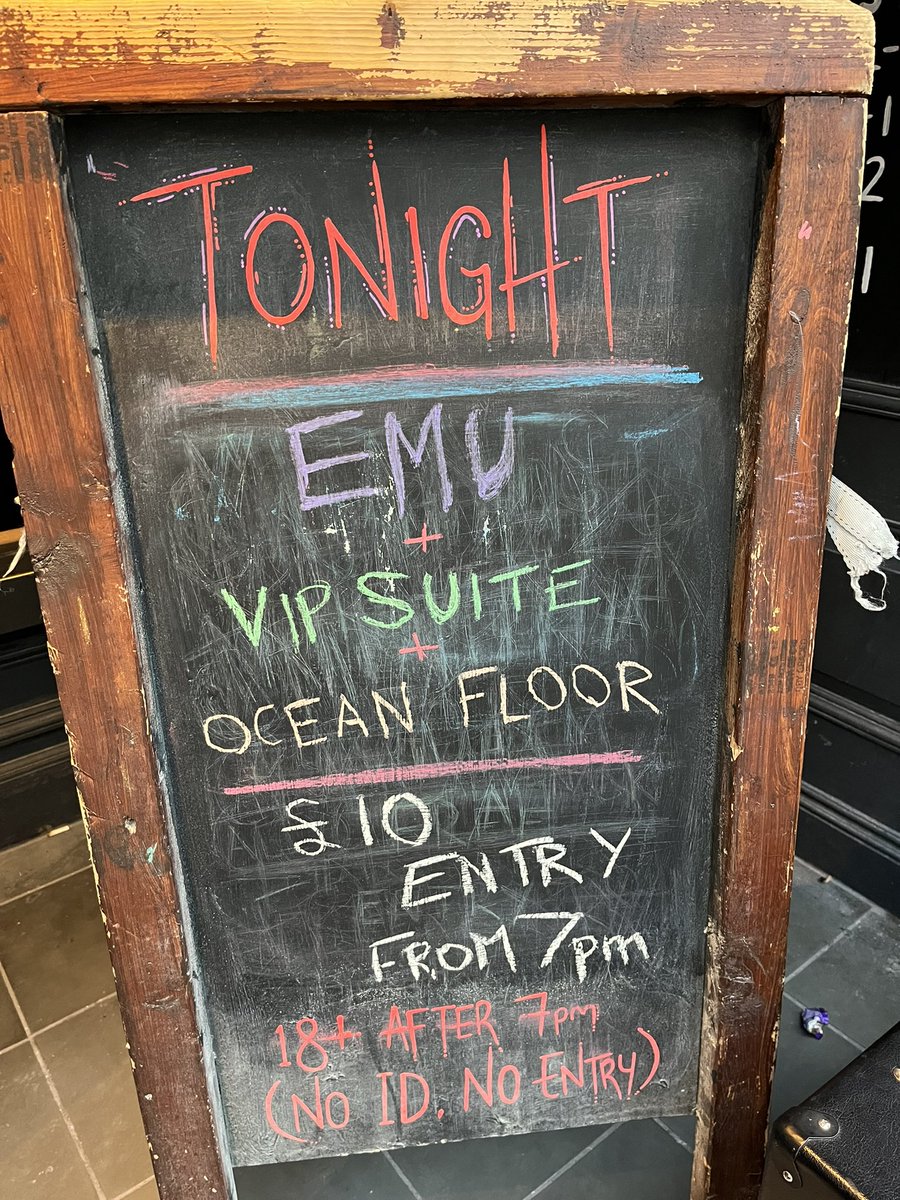 TONIGHT
EMU
+
VIP SUITE
+
OCEAN FLOOR
£10
ENTRY
FROM 7pm
18+ AFTER 7pm
(NO ID. NO ENTRY)